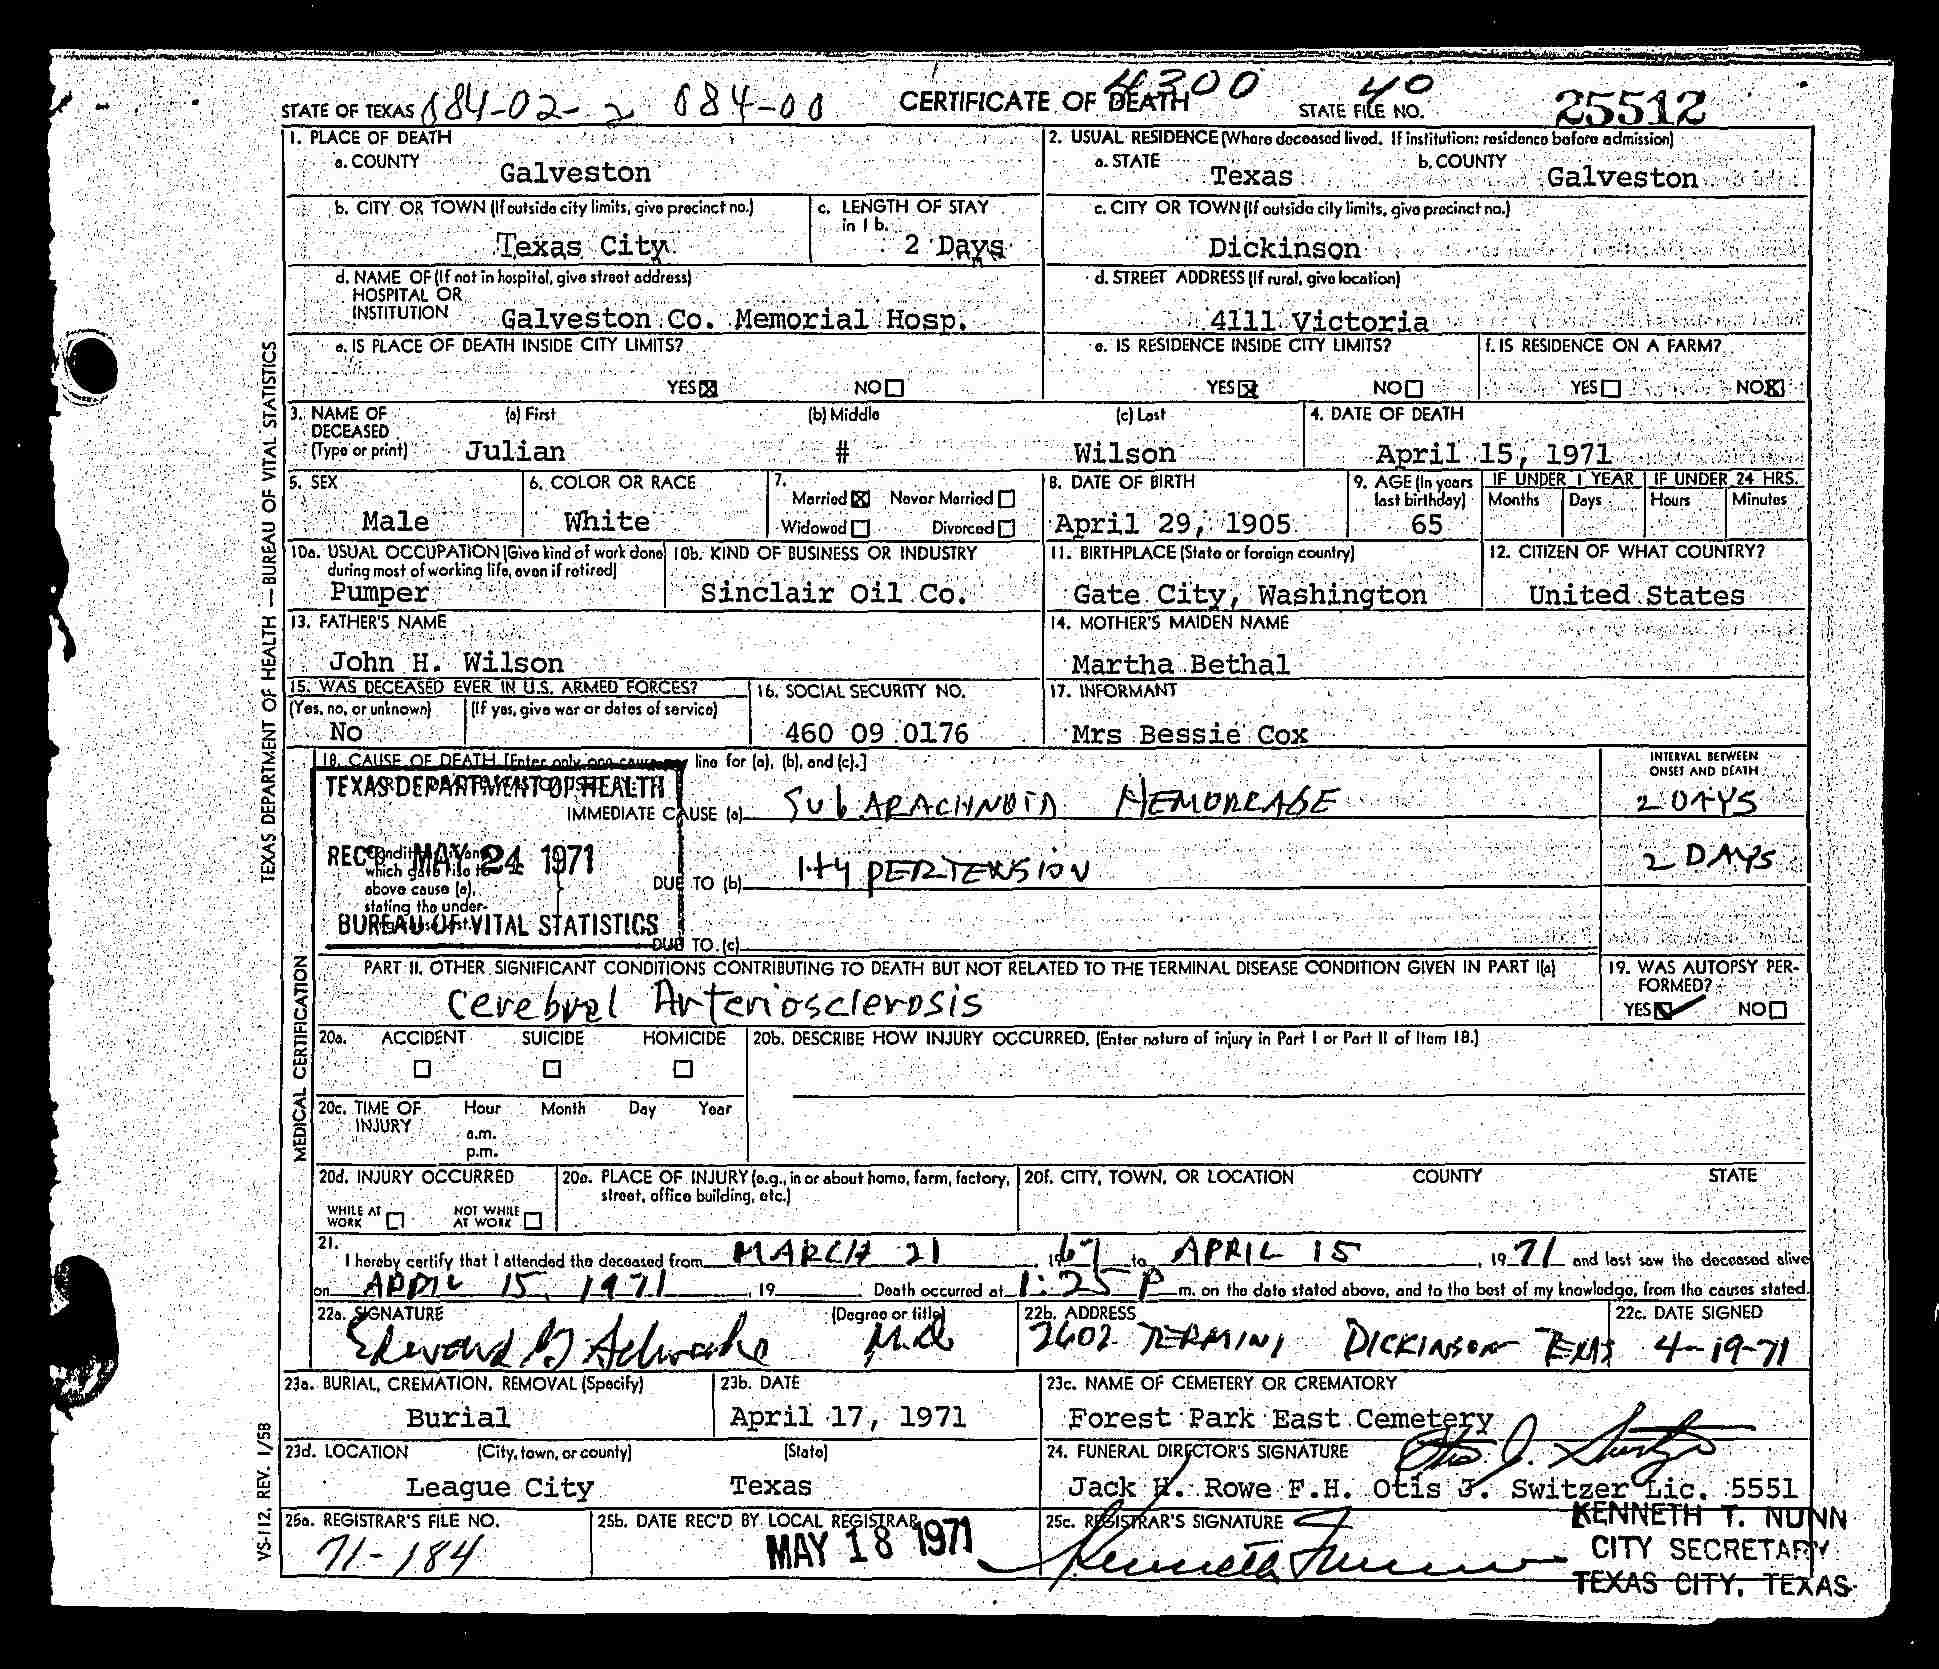 STATE OF TEXAS 084-02-2 084-00 CERTIFICATE OF DEATH 4300 STATE FILE NO. 40 25512
1. PLACE OF DEATH
a. COUNTY Galveston
2. USUAL RESIDENCE (Where deceased lived. If institution: residence before admission)
a. STATE Texas b. COUNTY Galveston
b. CITY OR TOWN (If outside city limits, give precinct no.) Texas City
c. LENGTH OF STAY in 1 b. 2 Days
c. CITY OR TOWN (If outside city limits, give precinct no.) Dickinson
d. NAME OF (If not in hospital, give street address)
HOSPITAL OR
INSTITUTION Galveston Co. Memorial Hosp.
d. STREET ADDRESS (If rural, give location) 4111 Victoria
e. IS PLACE OF DEATH INSIDE CITY LIMITS?
YES NO
e. IS RESIDENCE INSIDE CITY LIMITS?
YES NO
f. IS RESIDENCE ON A FARM?
YES NO
3. NAME OF DECEASED (Type or print)
(a) First Julian (b) Middle # (c) Last Wilson
4. DATE OF DEATH April 15, 1971
5. SEX Male
6. COLOR OR RACE White
7. Married Never Married
Widowed Divorced
8. DATE OF BIRTH April 29, 1905
9. AGE (In years last birthday) 65
IF UNDER 1 YEAR Months Days
IF UNDER 24 HRS. Hours Minutes
10a. USUAL OCCUPATION (Give kind of work done during most of working life, even if retired) Pumper
10b. KIND OF BUSINESS OR INDUSTRY Sinclair Oil Co.
11. BIRTHPLACE (State or foreign country) Gate City, Washington
12. CITIZEN OF WHAT COUNTRY? United States
13. FATHER'S NAME John H. Wilson
14. MOTHER'S MAIDEN NAME Martha Bethal
15. WAS DECEASED EVER IN U.S. ARMED FORCES?
(Yes, no, or unknown) No (If yes, give war or dates of service)
16. SOCIAL SECURITY NO. 460 09 0176
17. INFORMANT Mrs Bessie Cox
18. CAUSE OF DEATH [Enter only one cause per line for (a), (b), and (c).]
INTERVAL BETWEEN ONSET AND DEATH
TEXAS DEPARTMENT OF HEALTH
IMMEDIATE CAUSE (a) Sub ARACHNOID HEMORRAGE 2 DAYS
REC MAY 24 1971
which gave rise to
above cause (a),
stating the under-
DUE TO (b) HYPERTENSION 2 DAYS
BUREAU OF VITAL STATISTICS
DUE TO (c)
PART II. OTHER SIGNIFICANT CONDITIONS CONTRIBUTING TO DEATH BUT NOT RELATED TO THE TERMINAL DISEASE CONDITION GIVEN IN PART I(a)
Cerebral Arteriosclerosis
19. WAS AUTOPSY PERFORMED?
YES NO
20a. ACCIDENT SUICIDE HOMICIDE
20b. DESCRIBE HOW INJURY OCCURRED. (Enter nature of injury in Part I or Part II of Item 18.)
20c. TIME OF INJURY Hour Month Day Year
a.m.
p.m.
20d. INJURY OCCURRED
WHILE AT WORK NOT WHILE AT WORK
20e. PLACE OF INJURY (e.g., in or about home, farm, factory, street, office building, etc.)
20f. CITY, TOWN, OR LOCATION COUNTY STATE
21. I hereby certify that I attended the deceased from MARCH 21, 1967 to APRIL 15, 1971 and last saw the deceased alive
on APRIL 15, 1971, 19 Death occurred at 1:25 P m. on the date stated above, and to the best of my knowledge, from the causes stated.
22a. SIGNATURE (Degree or title) Edward M.D.
22b. ADDRESS 2602 TERMINI DICKINSON TEXAS
22c. DATE SIGNED 4-19-71
23a. BURIAL, CREMATION, REMOVAL (Specify) Burial
23b. DATE April 17, 1971
23c. NAME OF CEMETERY OR CREMATORY Forest Park East Cemetery
23d. LOCATION (City, town, or county) (State) League City Texas
24. FUNERAL DIRECTOR'S SIGNATURE Otis J. Switzer
Jack H. Rowe F.H. Otis J. Switzer Lic. 5551
25a. REGISTRAR'S FILE NO. 71-184
25b. DATE REC'D BY LOCAL REGISTRAR MAY 18 1971
25c. REGISTRAR'S SIGNATURE Kenneth T Nunn
KENNETH T. NUNN
CITY SECRETARY
TEXAS CITY, TEXAS
TEXAS DEPARTMENT OF HEALTH — BUREAU OF VITAL STATISTICS
MEDICAL CERTIFICATION
VS-112, REV. 1/58